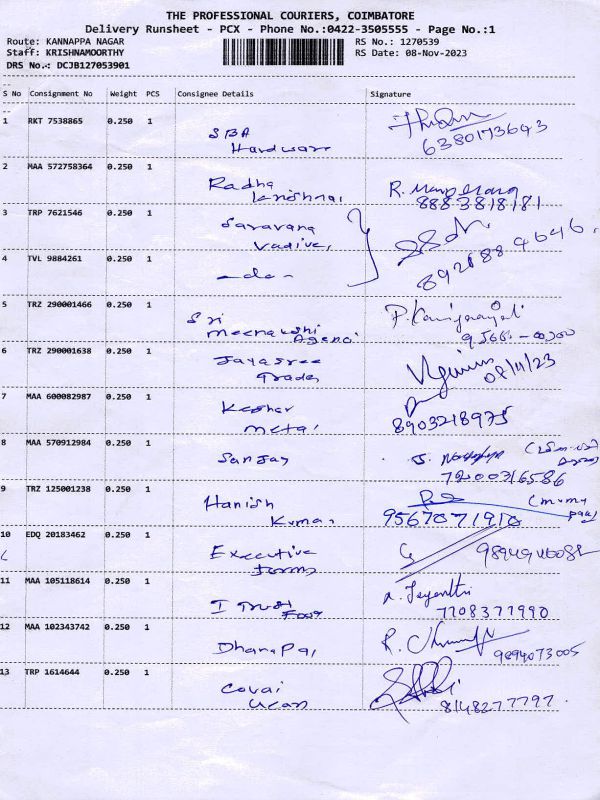 THE PROFESSIONAL COURIERS, COIMBATORE
Delivery Runsheet - PCX - Phone No.:0422-3505555 - Page No.:1
Route: KANNAPPA NAGAR
Staff: KRISHNAMOORTHY
DRS No.: DCJB127053901
RS No.: 1270539
RS Date: 08-Nov-2023
S No Consignment No Weight PCS Consignee Details Signature
1 RKT 7538865 0.250 1
SBA
Hardware
6380173643
2 MAA 572758364 0.250 1
Radha
Krishnan
8883818181
3 TRP 7621546 0.250 1
Saravana
Vadivel
4 TVL 9884261 0.250 1
-do-
5 TRZ 290001466 0.250 1
Sri
Meenakshi
Agenci
6 TRZ 290001638 0.250 1
Jayasree
Trades
08/11/23
7 MAA 600082987 0.250 1
Keshar
Metal
8903218975
8 MAA 570912984 0.250 1
Sanjay
7200316586
9 TRZ 125001238 0.250 1
Hanish
Kumar
9567871910
10 EDQ 20183462 0.250 1
Executive
11 MAA 105118614 0.250 1
I Trust
A. Jeyanthi
7708377990
12 MAA 102343742 0.250 1
Dhanapal
9894073005
13 TRP 1614644 0.250 1
Covai
8148277797